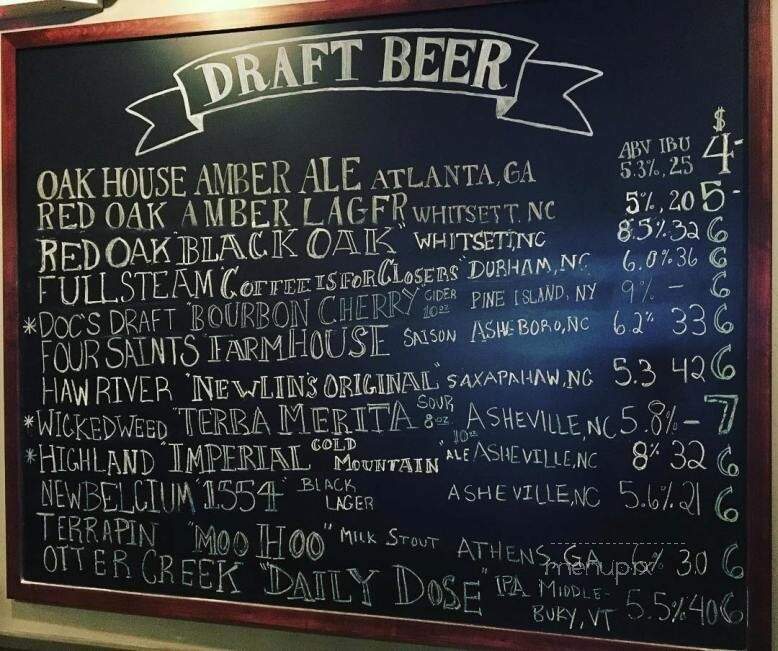 DRAFT BEER
$
ABV IBU
OAK HOUSE AMBER ALE ATLANTA, GA 5.3%, 25 4-
RED OAK AMBER LAGER WHITSETT, NC 5%, 20 5-
RED OAK "BLACK OAK" WHITSETT, NC 8.5% 32 6
FULLSTEAM "COFFEE IS FOR CLOSERS" DURHAM, NC 6.0% 36 6
*DOC'S DRAFT "BOURBON CHERRY CIDER 10oz PINE ISLAND, NY 9% - 6
FOUR SAINTS "FARMHOUSE SAISON ASHEBORO, NC 6.2% 33 6
HAW RIVER "NEWLIN'S ORIGINAL" SAXAPAHAW, NC 5.3 42 6
*WICKED WEED "TERRA MERITA SOUR 8oz. ASHEVILLE, NC 5.8% - 7
*HIGHLAND "IMPERIAL COLD MOUNTAIN" 10oz ALE ASHEVILLE, NC 8% 32 6
NEW BELGIUM "1554" BLACK LAGER ASHEVILLE, NC 5.6% 21 6
TERRAPIN "MOO HOO" MILK STOUT ATHENS, GA 6% 30 6
OTTER CREEK "DAILY DOSE" IPA MIDDLE-
BURY, VT 5.5% 40 6
menupix